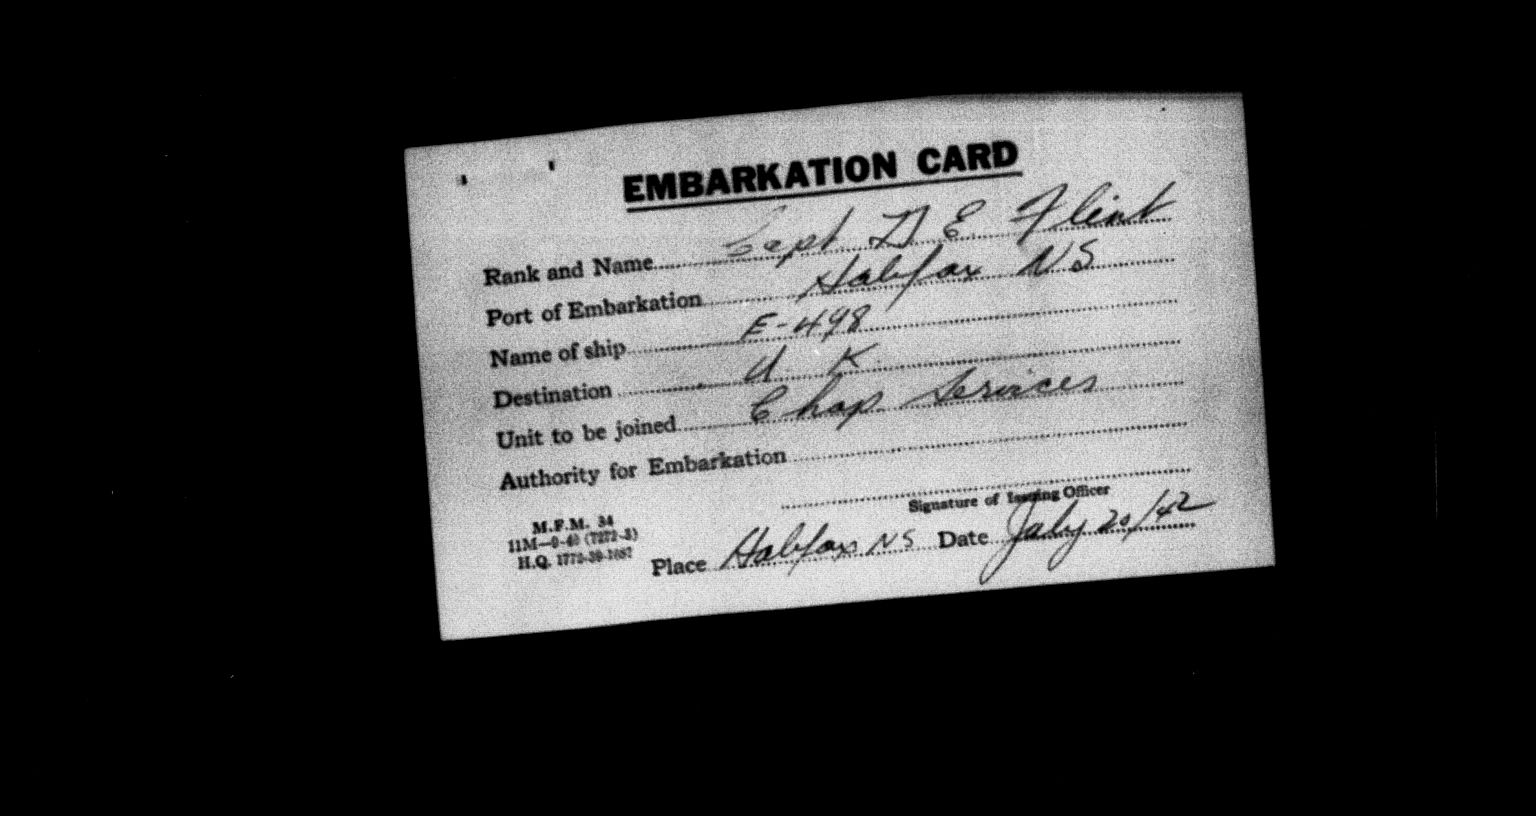 EMBARKATION CARD
Rank and Name Capt D E Flint
Port of Embarkation Halifax NS
Name of ship E-498
Destination U. K.
Unit to be joined Chap Services
Authority for Embarkation
Signature of Issuing Officer
M.F.M. 34
11M—9-40 (7272-3)
H.Q. 1772-39-1687
Place Halifax NS Date July 20/42